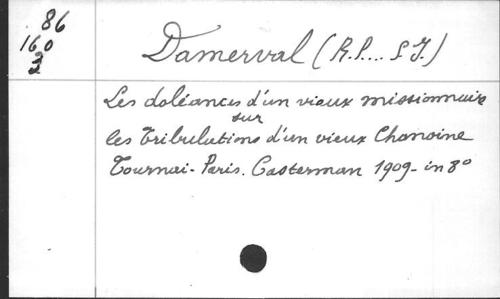 86
160
Damerval (R.P... S.J.)
Les doléances d'un vieux missionnaire
sur
les Tribulations d'un vieux Chanoine
Tournai-Paris. Casterman 1909-in 8°